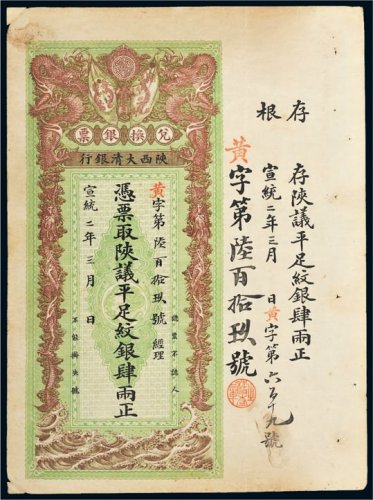 存根
存陝議平足紋銀肆兩正
宣統二年三月 日黃字第六百十九號
黃字第陸百拾玖號
兌換銀票
陝西大清銀行
黃字第陸百拾玖號 經理
憑票取陝議平足紋銀肆兩正
宣統二年三月 日
認票不認人
不掛失號